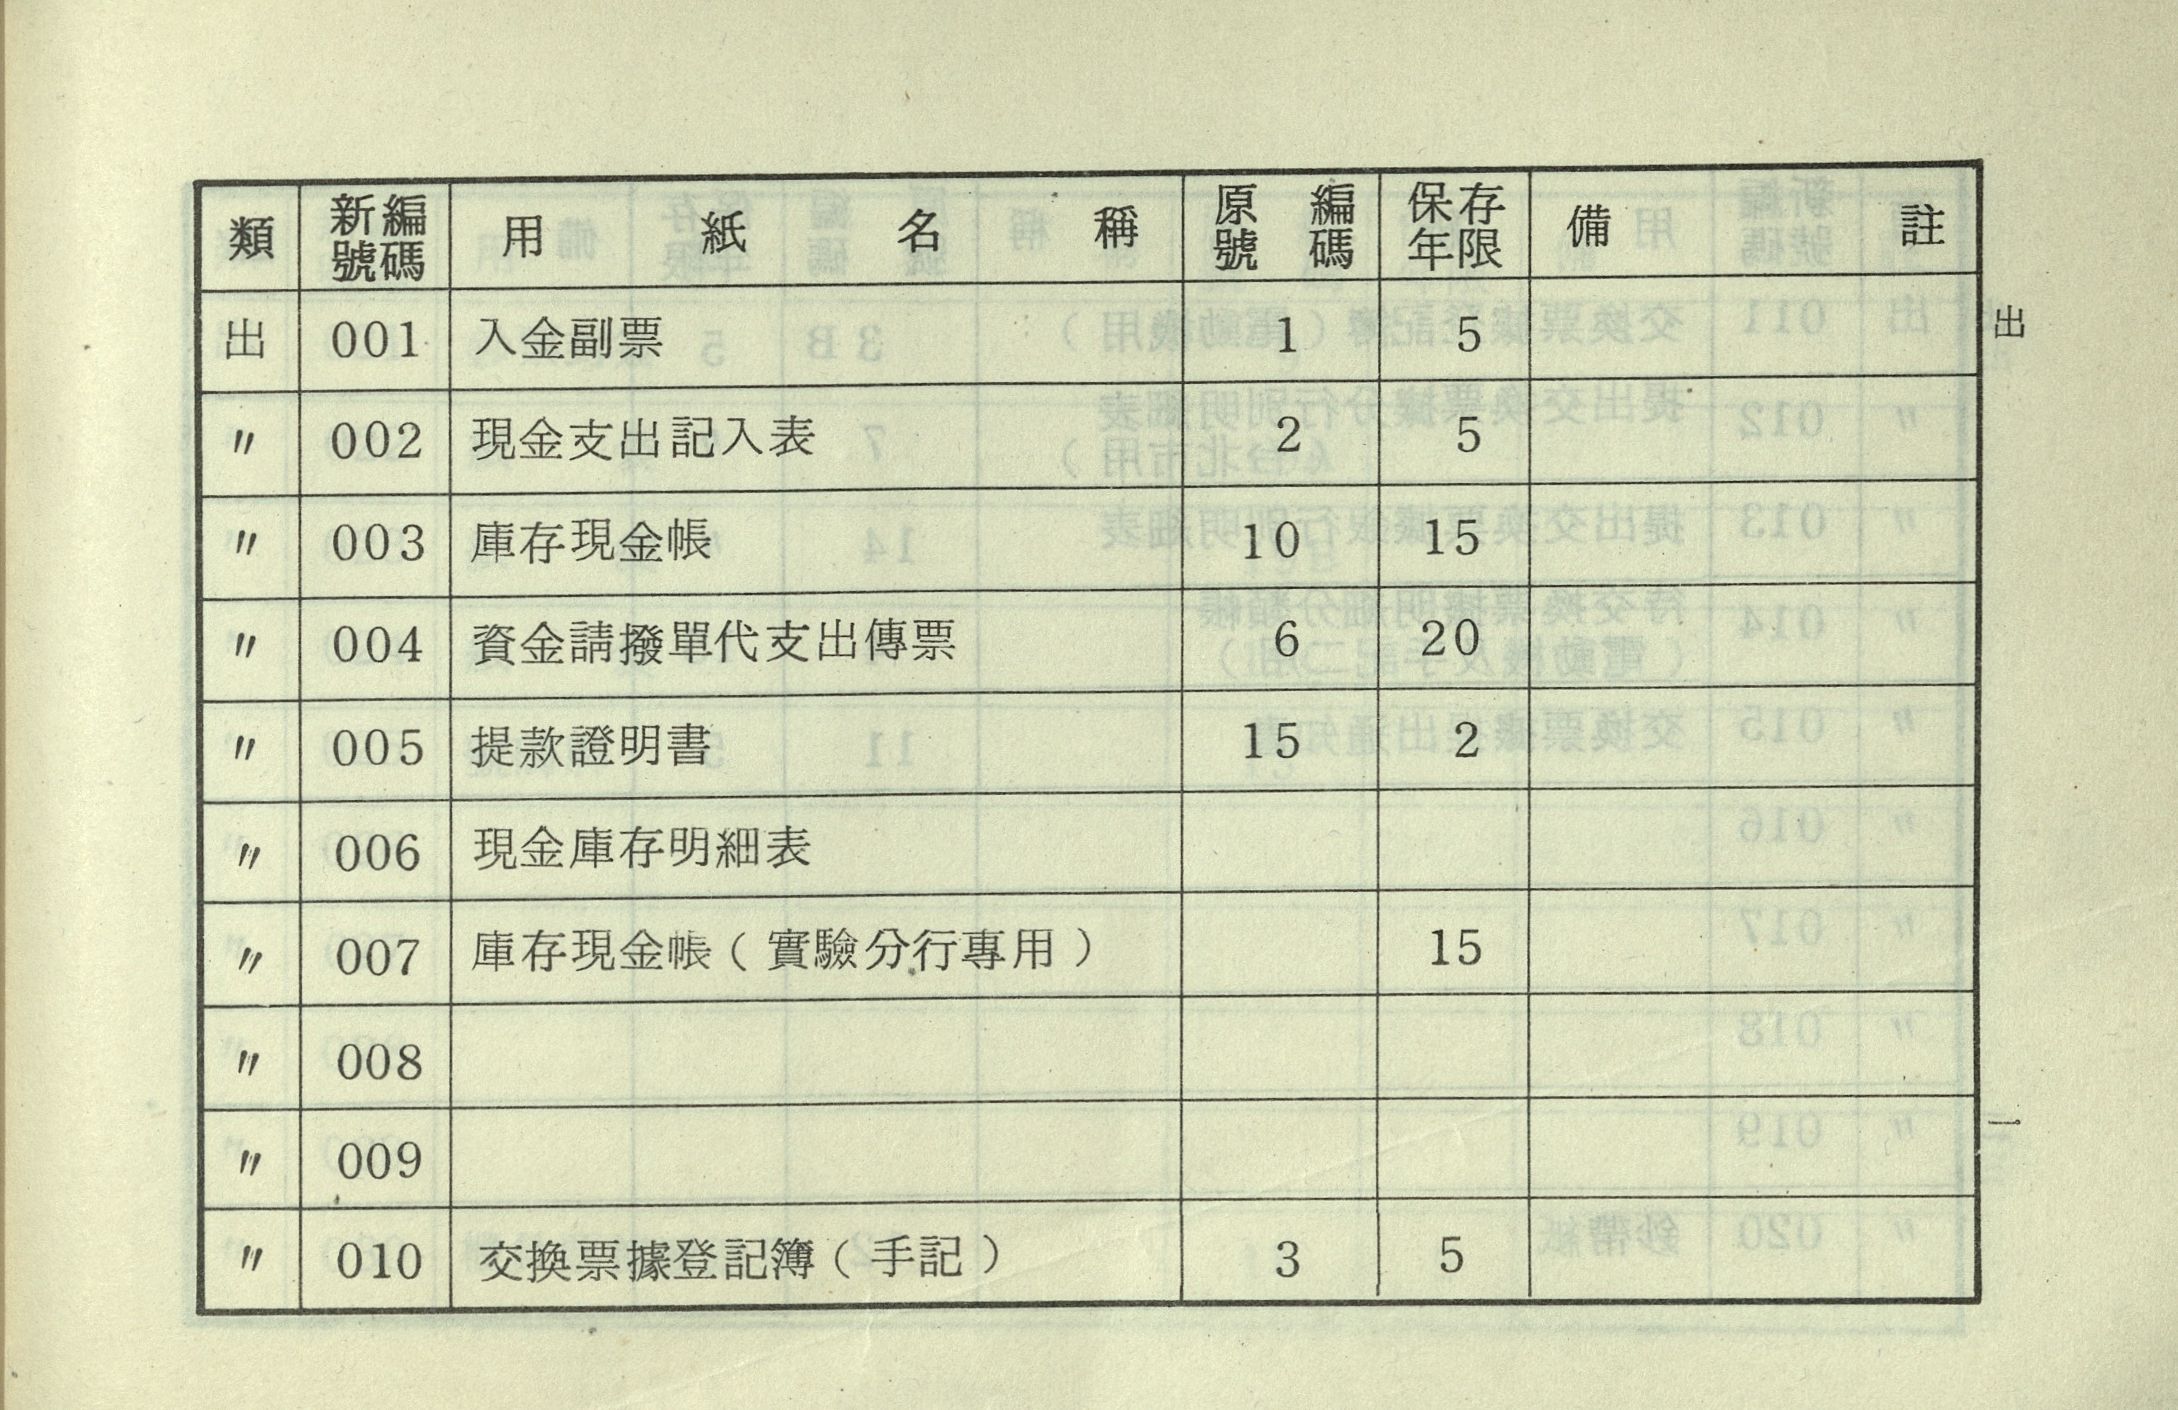 類 新編號碼 用紙名稱 原編號碼 保存年限 備註
出 001 入金副票 1 5
〃 002 現金支出記入表 2 5
〃 003 庫存現金帳 10 15
〃 004 資金請撥單代支出傳票 6 20
〃 005 提款證明書 15 2
〃 006 現金庫存明細表
〃 007 庫存現金帳（實驗分行專用） 15
〃 008
〃 009
〃 010 交換票據登記簿（手記） 3 5
出
一